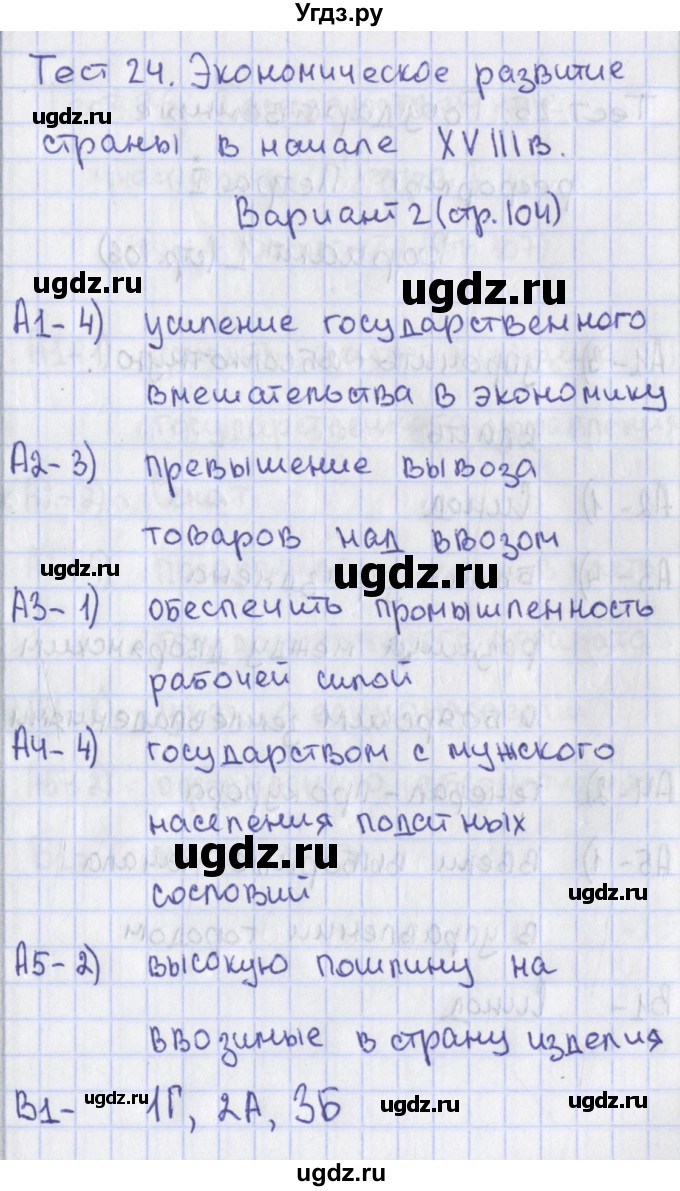 Угдз.ру
Тест 24. Экономическое развитие
ugdz.ru
страны в начале XVIII в.
Вариант 2 (стр. 104)
ugdz.ru ugdz.ru
А1- 4) усиление государственного
вмешательства в экономику
ugdz.ru
А2- 3) превышение вывоза
товаров над ввозом
ugdz.ru ugdz.ru
А3- 1) обеспечить промышленность
рабочей силой
ugdz.ru
А4- 4) государством с мужского
населения податных
ugdz.ru
сословий ugdz.ru
А5- 2) высокую пошлину на
ugdz.ru
ввозимые в страну изделия
В1- ugdz.ru 1Г, 2А, 3Б ugdz.ru ugdz.ru
ugdz.ru